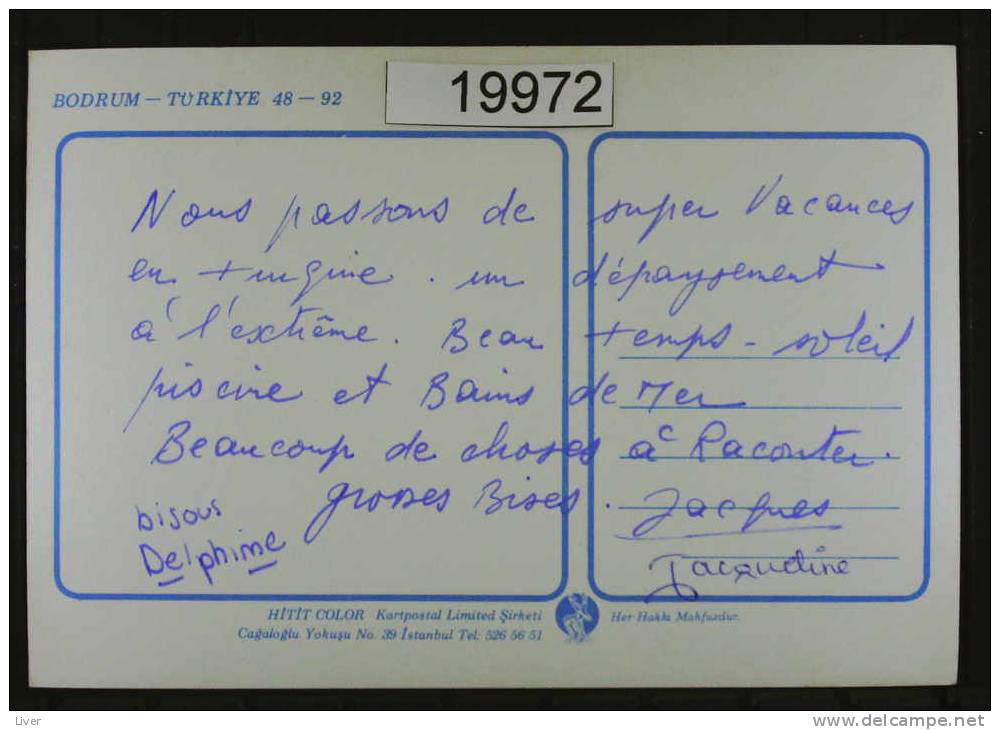 19972
BODRUM — TÜRKİYE 48 — 92
Nous passons de super Vacances
en . un dépaysement
à l'extrême. Beau temps - soleil
piscine et Bains de Mer
Beaucoup de choses à Raconter.
grosses Bises. Jacques
bisous
Delphine
Jacqueline
HİTİT COLOR Kartpostal Limited Şirketi
Cağaloğlu Yokuşu No. 39 İstanbul Tel: 526 56 51
Her Hakkı Mahfuzdur.
Liver
www.delcampe.net